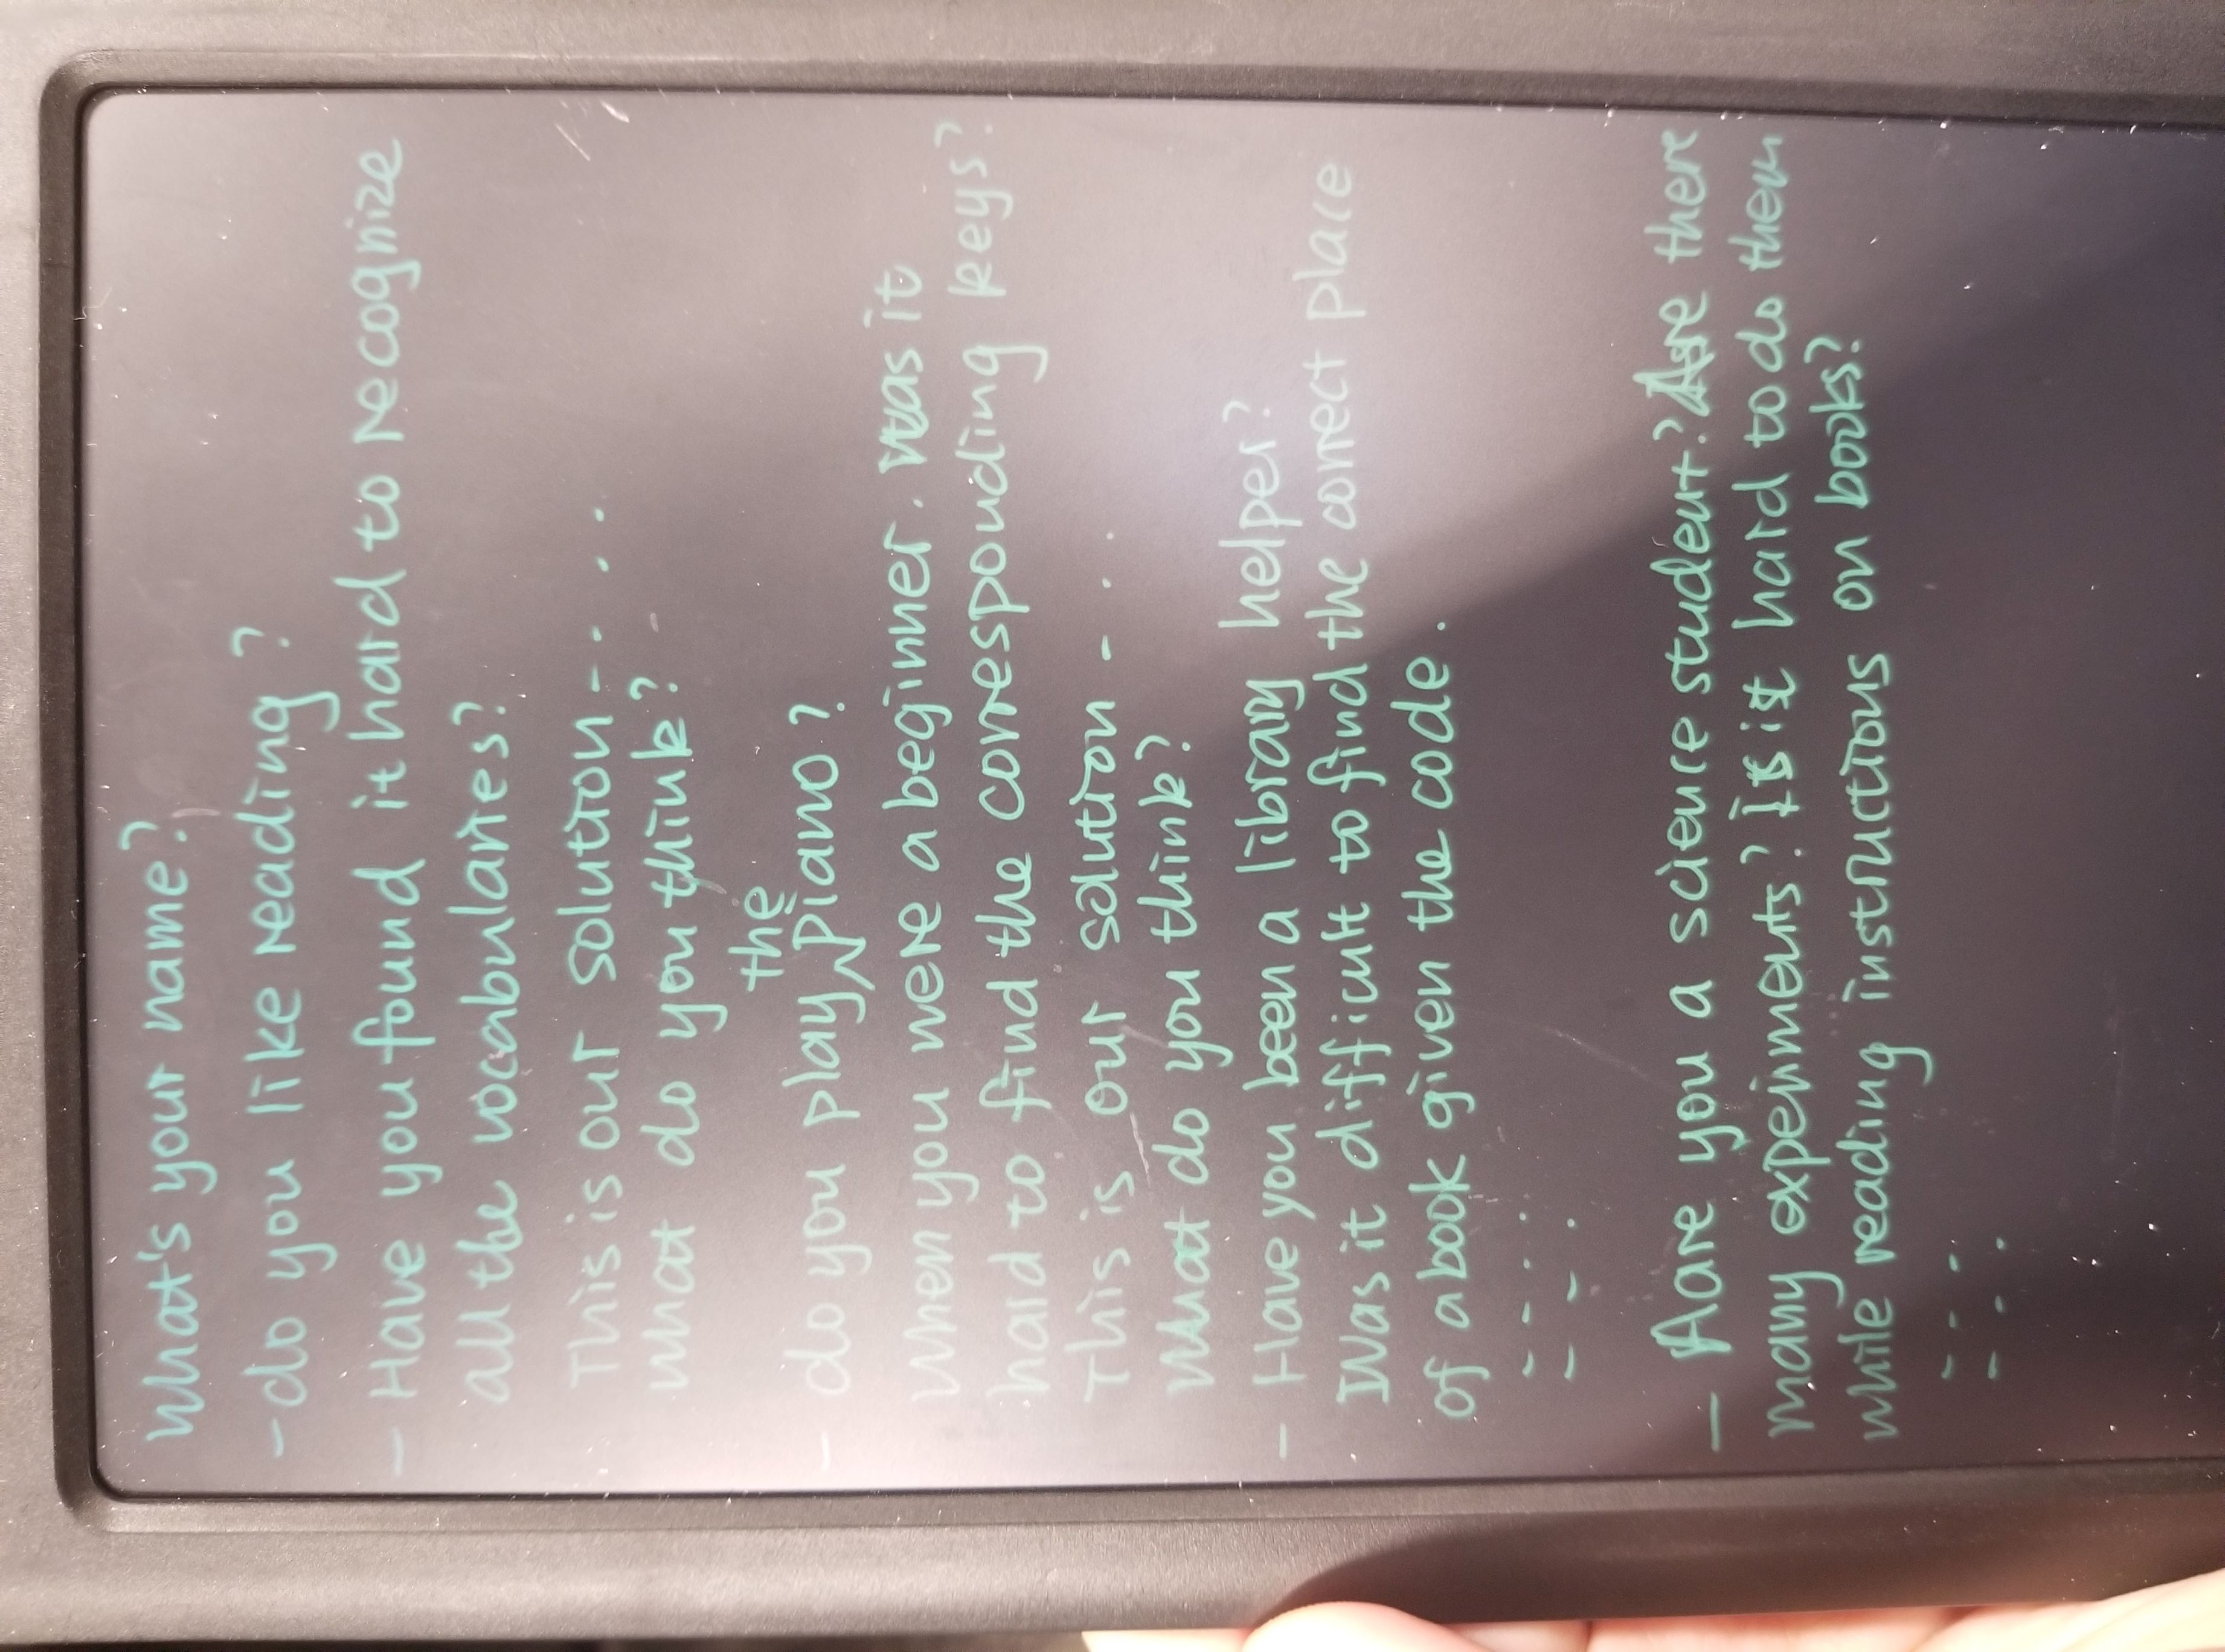 What's your name?
- do you like reading?
- Have you found it hard to recognize
all the vocabularies?
This is our solution - - . .
what do you think?
the
- do you play ^ piano?
When you were a beginner. was it
hard to find the corresponding keys?
This is our solution - . . .
What do you think?
- Have you been a library helper?
Was it difficult to find the correct place
of a book given the code.
- - . .
- - .
- Aare you a science student? Are there
many experiments? Is it hard to do them
while reading instructions on books?
- - -
- - .